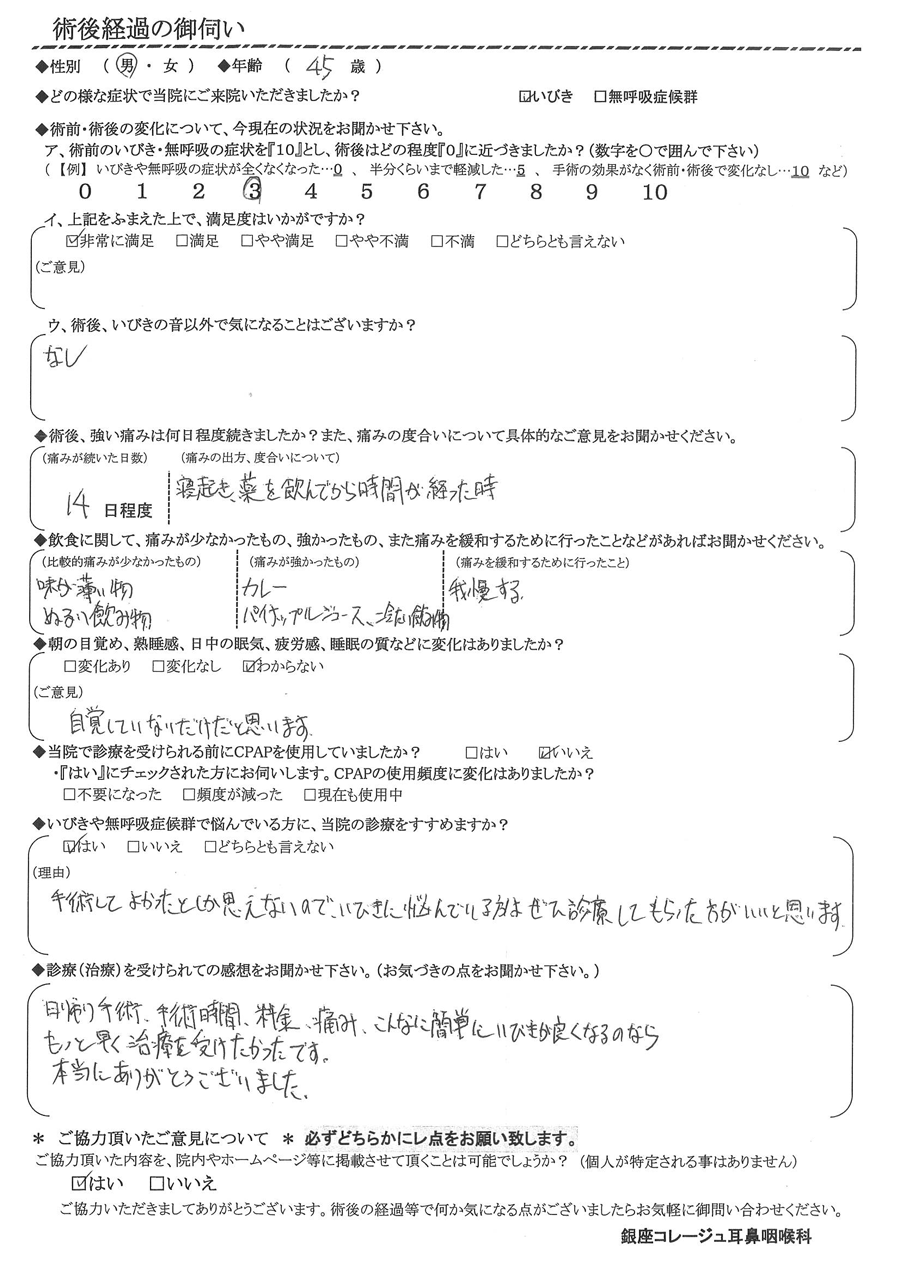 術後経過の御伺い
◆性別 （ 男 ・ 女 ） ◆年齢 （ 45 歳 ）
◆どの様な症状で当院にご来院いただきましたか？ ☑いびき □無呼吸症候群
◆術前・術後の変化について、今現在の状況をお聞かせ下さい。
ア、術前のいびき・無呼吸の症状を『10』とし、術後はどの程度『0』に近づきましたか？（数字を〇で囲んで下さい）
（【例】 いびきや無呼吸の症状が全くなくなった…0 、 半分くらいまで軽減した…5 、 手術の効果がなく術前・術後で変化なし…10 など）
0 1 2 3 4 5 6 7 8 9 10
イ、上記をふまえた上で、満足度はいかがですか？
☑非常に満足 □満足 □やや満足 □やや不満 □不満 □どちらとも言えない
（ご意見）
ウ、術後、いびきの音以外で気になることはございますか？
なし
◆術後、強い痛みは何日程度続きましたか？また、痛みの度合いについて具体的なご意見をお聞かせください。
（痛みが続いた日数） （痛みの出方、度合いについて）
14 日程度 寝起き、薬を飲んでから時間が経った時
◆飲食に関して、痛みが少なかったもの、強かったもの、また痛みを緩和するために行ったことなどがあればお聞かせください。
（比較的痛みが少なかったもの） （痛みが強かったもの） （痛みを緩和するために行ったこと）
味が薄い物 カレー 我慢する
ぬるい飲み物 パイナップルジュース、冷たい飲み物
◆朝の目覚め、熟睡感、日中の眠気、疲労感、睡眠の質などに変化はありましたか？
□変化あり □変化なし ☑わからない
（ご意見）
自覚していないだけだと思います。
◆当院で診療を受けられる前にCPAPを使用していましたか？ □はい ☑いいえ
・『はい』にチェックされた方にお伺いします。CPAPの使用頻度に変化はありましたか？
□不要になった □頻度が減った □現在も使用中
◆いびきや無呼吸症候群で悩んでいる方に、当院の診療をすすめますか？
☑はい □いいえ □どちらとも言えない
（理由）
手術してよかったとしか思えないので、いびきに悩んでいる方はぜひ診療してもらった方がいいと思います。
◆診療（治療）を受けられての感想をお聞かせ下さい。（お気づきの点をお聞かせ下さい。）
日帰り手術、手術時間、料金、痛み、こんなに簡単にいびきが良くなるのなら
もっと早く治療を受けたかったです。
本当にありがとうございました。
＊ ご協力頂いたご意見について ＊ 必ずどちらかにレ点をお願い致します。
ご協力頂いた内容を、院内やホームページ等に掲載させて頂くことは可能でしょうか？ （個人が特定される事はありません）
☑はい □いいえ
ご協力いただきましてありがとうございます。術後の経過等で何か気になる点がございましたらお気軽に御問い合わせください。
銀座コレージュ耳鼻咽喉科